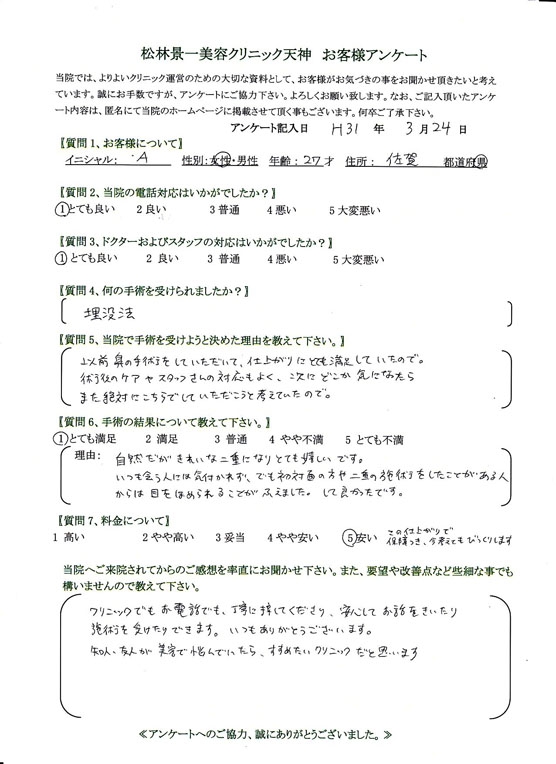 松林景一美容クリニック天神 お客様アンケート
当院では、よりよいクリニック運営のための大切な資料として、お客様がお気づきの事をお聞かせ頂きたいと考え
ています。誠にお手数ですが、アンケートにご協力下さい。よろしくお願い致します。なお、ご記入頂いたアンケ
ート内容は、匿名にて当院のホームページに掲載させて頂く事もございます。何卒ご了承下さい。
アンケート記入日 H31 年 3月24日
【質問1、お客様について】
イニシャル: A 性別:女性・男性 年齢:27才 住所: 佐賀 都道府県
【質問2、当院の電話対応はいかがでしたか?】
1とても良い 2良い 3普通 4悪い 5大変悪い
【質問3、ドクターおよびスタッフの対応はいかがでしたか?】
1とても良い 2 良い 3 普通 4 悪い 5大変悪い
【質問4、何の手術を受けられましたか?】
埋没法
【質問5、当院で手術を受けようと決めた理由を教えて下さい。】
以前鼻の手術をしていただいて、仕上がりにとても満足していたので。
術後のケアやスタッフさんの対応もよく、次にどこか気になたら
また絶対にこちらでしていただこうと考えていたので。
【質問6、手術の結果について教えて下さい。】
1とても満足 2 満足 3 普通 4 やや不満 5 とても不満
理由: 自然だがきれいな二重になりとても嬉しいです。
いつも会う人には気付かれず、でも初対面の方や二重の施術をしたことがある人
からは目をほめられることがふえました。して良かったです。
【質問7、料金について】
1 高い 2やや高い 3妥当 4やや安い 5安い この仕上がりで
保障つき、今考えてもびっくりします
当院へご来院されてからのご感想を率直にお聞かせ下さい。また、要望や改善点など些細な事でも
構いませんので教えて下さい。
クリニックでもお電話でも、丁寧に接してくださり、安心してお話をきいたり
施術を受けたりできます。いつもありがとうございます。
知人、友人が美容で悩んでいたら、すすめたいクリニックだと思います
≪アンケートへのご協力、誠にありがとうございました。≫